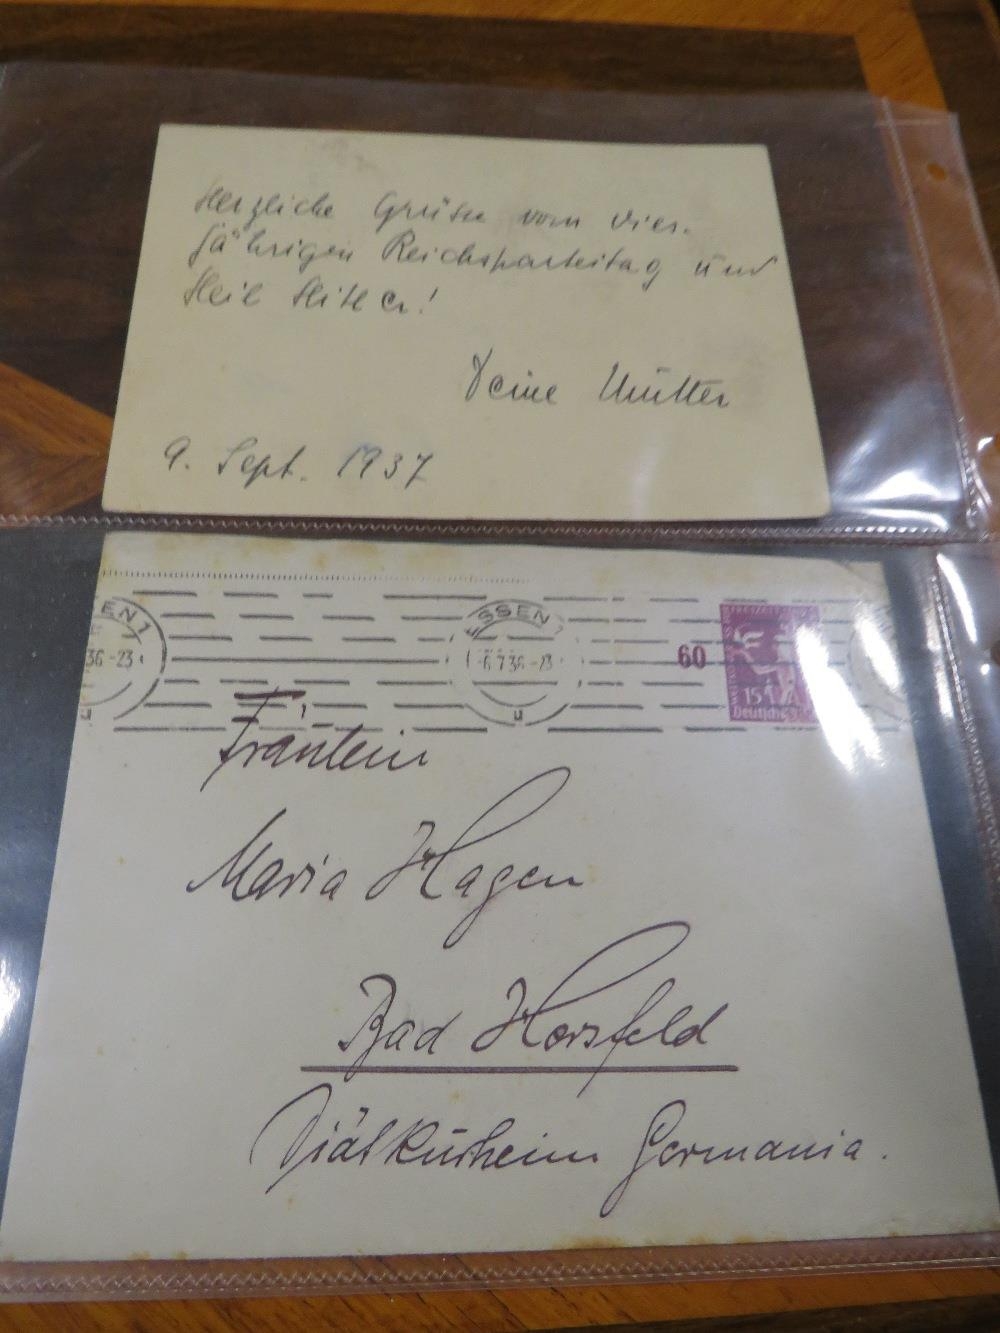 Herzliche Grüße vom vier-
jährigen Reichsparteitag und
Heil Hitler!
Deine Mutter
9. Sept. 1937
EN 1
36-23
u
ESSEN 1
-6.7.36-23
u
60
15+
Deutsches
Fräulein
Maria Hagen
Bad Hersfeld
Diätkurheim Germania.